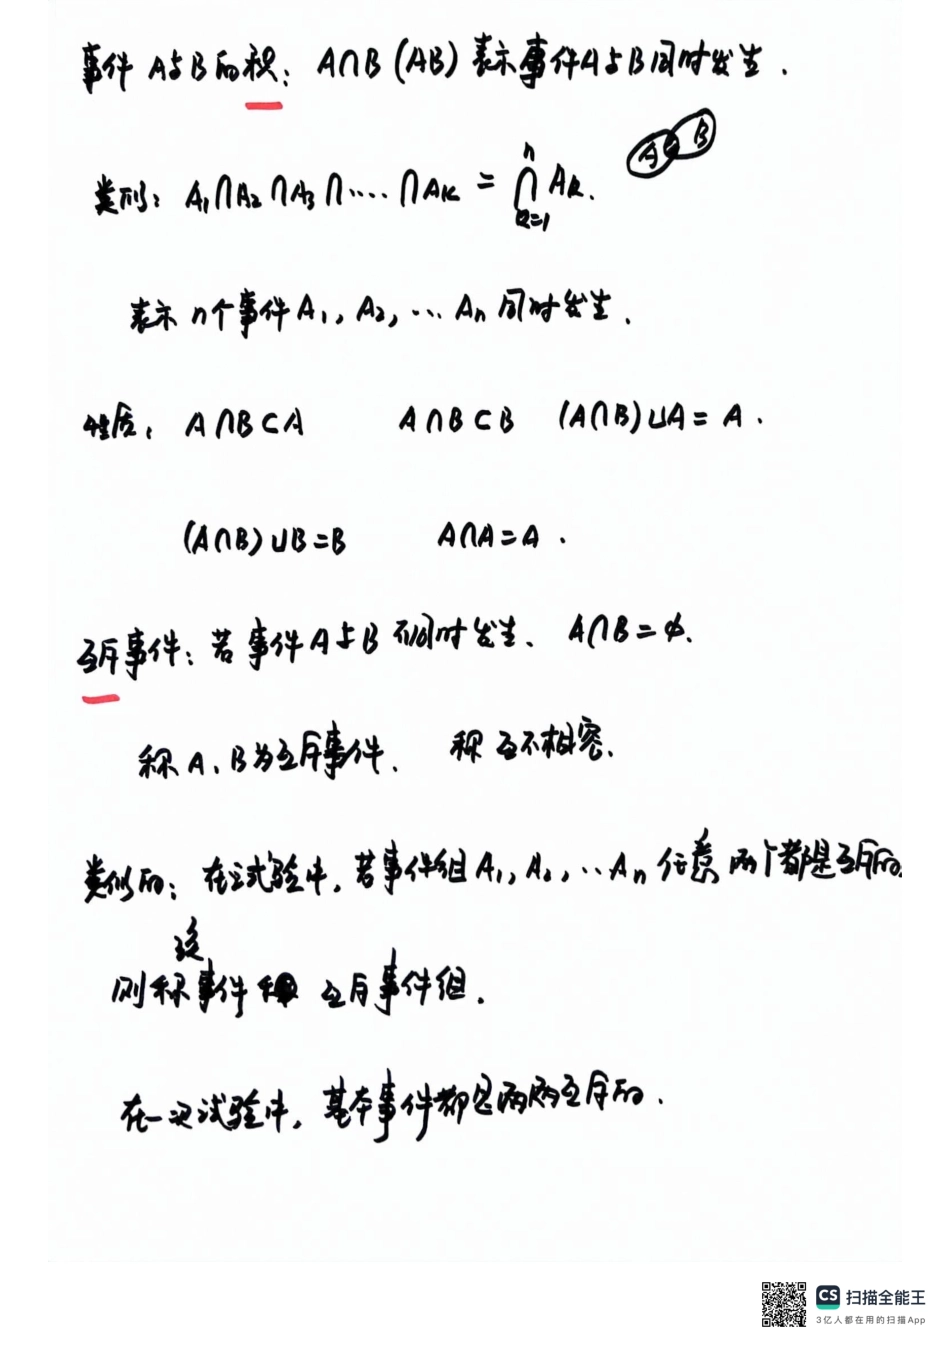 事件 A与B的积：A∩B (AB) 表示事件A与B同时发生.
A B
类别：A₁∩A₂∩A₃∩····∩Aₖ = ⋂ₖ₌₁ⁿ Aₖ.
表示 n个事件A₁, A₂, … Aₙ 同时发生.
性质：A∩B⊂A A∩B⊂B (A∩B)∪A = A.
(A∩B)∪B=B A∩A=A.
互斥事件：若事件A与B 不同时发生、A∩B=ϕ.
称A、B为互斥事件. 称互不相容.
类似的：在试验中，若事件组A₁, A₂, … Aₙ 任意两个都是互斥的
则称这事件 互斥事件组.
在一次试验中，基本事件都是两两互斥的.
CS 扫描全能王
3亿人都在用的扫描App